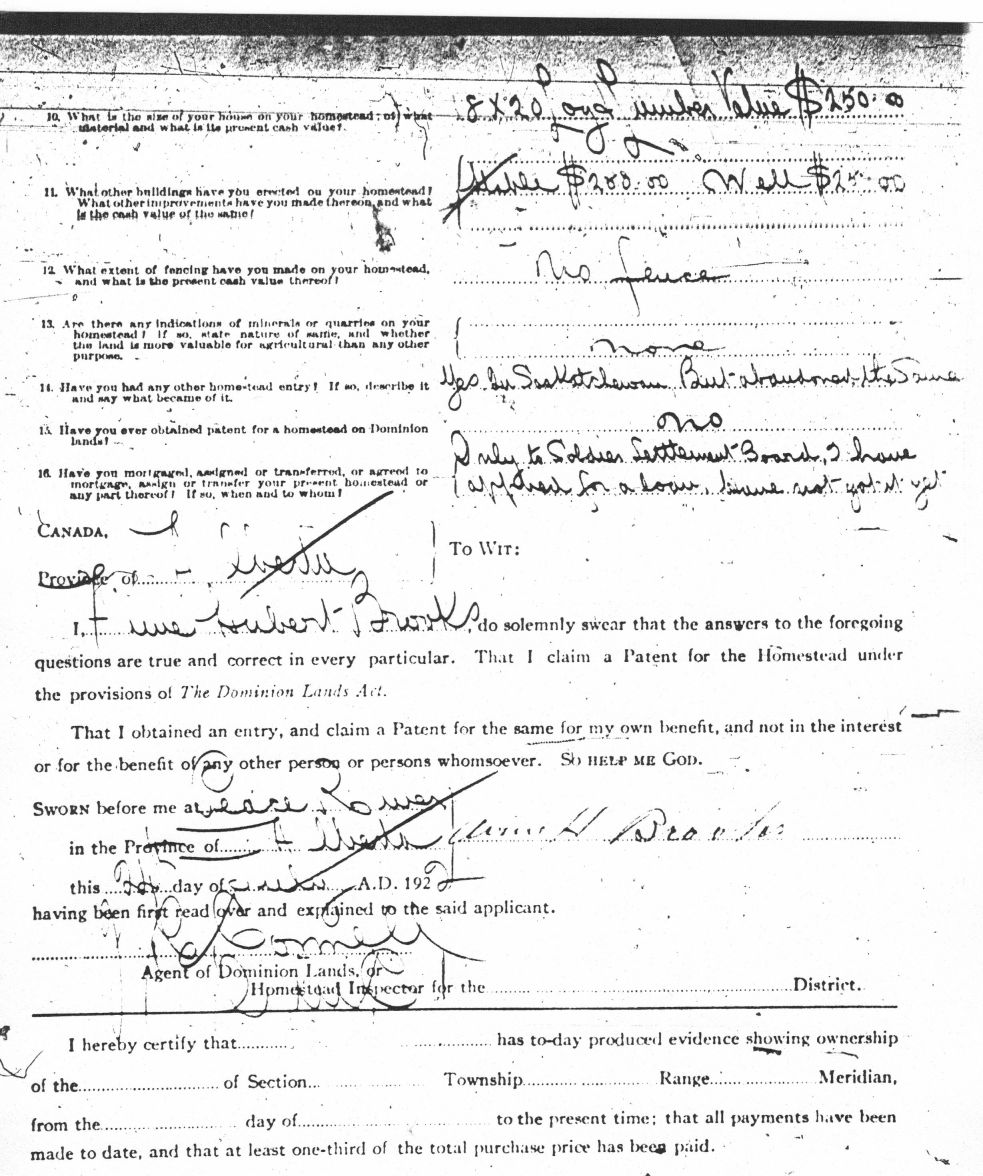 10. What is the size of your house on your homestead; of what
material and what is its present cash value?
18 x 20 Log Lumber Value $250.00
11. What other buildings have you erected on your homestead?
What other improvements have you made thereon, and what
is the cash value of the same?
Stable $200.00 Well $25.00
12. What extent of fencing have you made on your homestead,
and what is the present cash value thereof?
No fence
13. Are there any indications of minerals or quarries on your
homestead? If so, state nature of same, and whether
the land is more valuable for agricultural than any other
purpose.
none
14. Have you had any other homestead entry? If so, describe it
and say what became of it.
Yes in Saskatchewan But abandoned the Same
15. Have you ever obtained patent for a homestead on Dominion
lands?
no
16. Have you mortgaged, assigned or transferred, or agreed to
mortgage, assign or transfer your present homestead or
any part thereof? If so, when and to whom?
Only to Soldier Settlement Board, I have
applied for a loan, have not got it yet
CANADA,
Province of Alberta
TO WIT:
I, Hubert Brooks, do solemnly swear that the answers to the foregoing
questions are true and correct in every particular. That I claim a Patent for the Homestead under
the provisions of The Dominion Lands Act.
That I obtained an entry, and claim a Patent for the same for my own benefit, and not in the interest
or for the benefit of any other person or persons whomsoever. SO HELP ME GOD.
SWORN before me at Peace River
in the Province of Alberta
H Brooks
this day of A.D. 1922
having been first read over and explained to the said applicant.
Agent of Dominion Lands, or
Homestead Inspector for the District.
I hereby certify that has to-day produced evidence showing ownership
of the of Section Township Range Meridian,
from the day of to the present time; that all payments have been
made to date, and that at least one-third of the total purchase price has been paid.